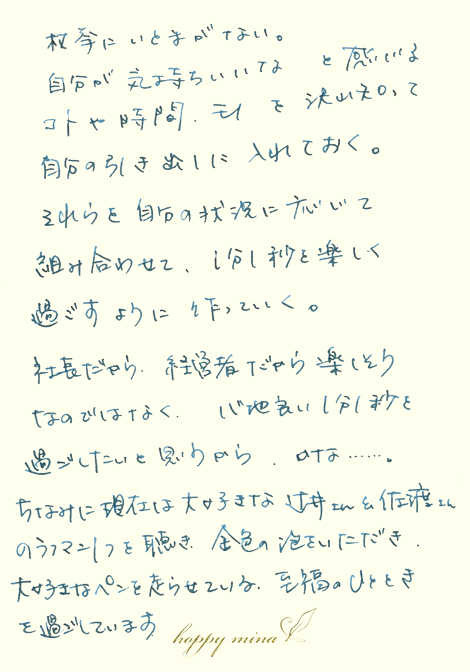 枚挙にいとまがない。
自分が気持ちいいな と感じる
コトや時間、モノ を沢山知って
自分の引き出しに入れておく。
それらを自分の状況に応じて
組み合わせて、1分1秒を楽しく
過ごすように作っていく。
社長だから、経営者だから楽しそう
なのではなく、心地良い1分1秒を
過ごしたいと思うから、かな……。
ちなみに現在は大好きな辻井さん&佐渡さん
のラフマニノフを聴き、金色の泡をいただき、
大好きなペンを走らせている、至福のひととき
を過ごしています
happy mina